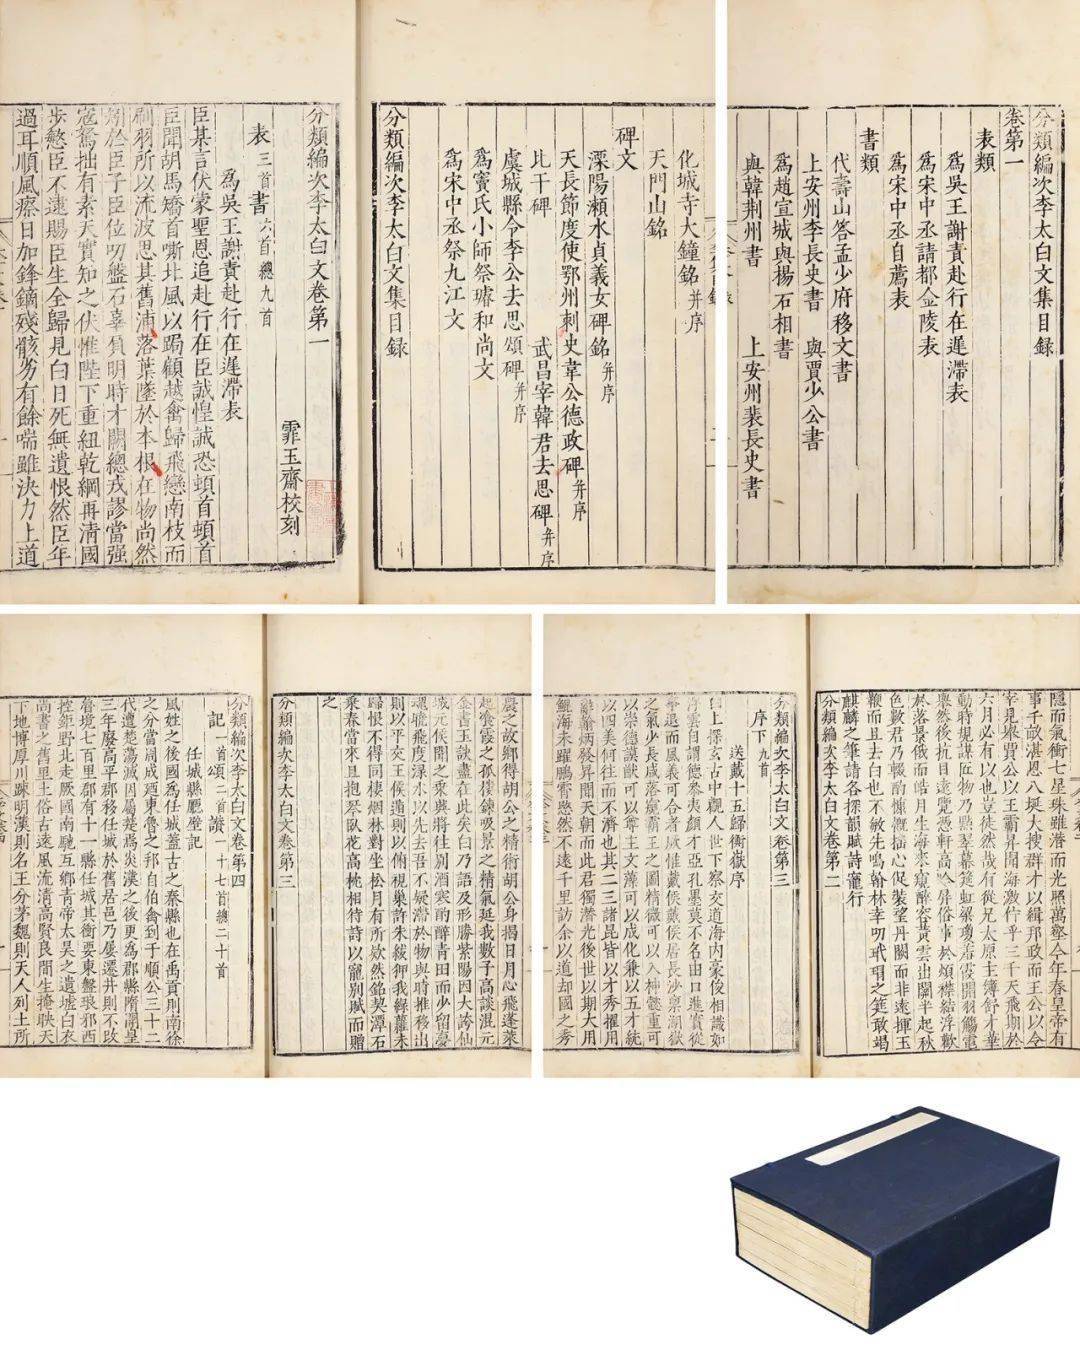 分類編次李太白文集目録
卷第一
表類
爲吳王謝責赴行在遲滯表
爲宋中丞請都金陵表
爲宋中丞自薦表
書類
代壽山答孟少府移文書
上安州李長史書　與賈少公書
爲趙宣城與楊右相書
與韓荆州書　上安州裴長史書
化城寺大鐘銘并序
天門山銘
碑文
溧陽瀨水貞義女碑銘并序
天長節度使鄂州刺史韋公德政碑并序
比干碑　武昌宰韓君去思碑并序
虞城縣令李公去思頌碑并序
爲竇氏小師祭璿和尚文
爲宋中丞祭九江文
分類編次李太白文集目録
分類編次李太白文卷第一
霏玉齋校刻
表三首書六首總九首
爲吳王謝責赴行在遲滯表
臣某言伏蒙聖恩追赴行在臣誠惶誠恐頓首頓首
臣聞胡馬矯首嘶北風以跼顧越禽歸飛戀南枝而
刷羽所以流波思其舊浦落葉墜於本根在物尚然
矧於臣子臣位叨盤石辜負明時才闕總戎謬當强
寇駑拙有素天實知之伏惟陛下重紐乾綱再清國
步愍臣不逮賜臣生全歸見白日死無遺恨然臣年
過耳順風瘵日加鋒鏑殘骸劣有餘喘雖決力上道
隱而氣衝七星珠雖潛而光照萬壑今年春皇帝有
事千畝湛恩八埏大搜群才以緝邦政而王公以令
宰見舉賈公以王霸昇聞海激佇乎三千天飛期於
六月必有以也豈徒然哉有從兄太原主簿舒才華
動時規謀匠物乃黙翠幕筵虹梁瓊羞霞開羽觴電
舉然後抗目遠覽憑軒高吟屏俗事於煩襟結浮歡
於落景俄而皓月生海來窺醉容黃雲出關半起秋
色數君乃輟酌慷慨搖心促裝望丹闕而非遠揮玉
鞭而且去白也不敏先鳴翰林幸叨玳瑁之筵敢竭
麒麟之筆請各探韻賦詩寵行
分類編次李太白文卷第二
分類編次李太白文卷第三
序下九首
送戴十五歸衡嶽序
白上探玄古中觀人世下察交道海内豪俊相識如
浮雲自謂德參夷顔才亞孔墨莫不名由口進實從
事退而風義可合者厥惟戴侯戴侯居長沙稟湖嶽
之氣少長咸洛窺霸王之圖精微可以入神懿重可
以崇德謨猷可以尊主文藻可以成化兼以五才統
以四美何往而不濟也其二三諸昆皆以才秀擢用
辭翰炳發昇聞天朝而此君獨潛光後世以期大用
鯤海未躍鵬霄悠然不遠千里訪余以道却國之秀
晨之故鄉得胡公之精術胡公身揭日月心飛蓬萊
起飡霞之孤樓鍊吸景之精氣延我數子高談混元
金書玉訣盡在此矣白乃語及形勝紫陽因大誇仙
城元侯聞之乘興將往别酒寒酌醉青田而少留夢
魂曉飛度淥水以先去吾不凝滯於物與時推移出
則以平交王侯遁則以俯視巢許朱紱狎我綠蘿未
歸恨不得同棲烟林對坐松月有所欵然銘契潭石
乘春當來且抱琴臥花高枕相待詩以寵别賦而贈
之
分類編次李太白文卷第三
分類編次李太白文卷第四
記一首頌二首讚一十七首總二十首
任城縣廳壁記
風姓之後國爲任城蓋古之秦縣也在禹貢則南徐
之分當周成廼東魯之邦自伯禽到于順公三十二
代遭楚蕩滅因屬楚焉炎漢之後更爲郡縣隋開皇
三年廢高平郡移任城於舊居邑乃屢遷井則不改
魯境七百里郡有十一縣任城其衝要東盤琅邪西
控鉅野北走厥國南馳互鄉青帝太昊之遺墟白衣
尚書之舊里土俗古遠風流清高賢良間生掩映天
下地博厚川疎明漢則名王分茅魏則天人列土所